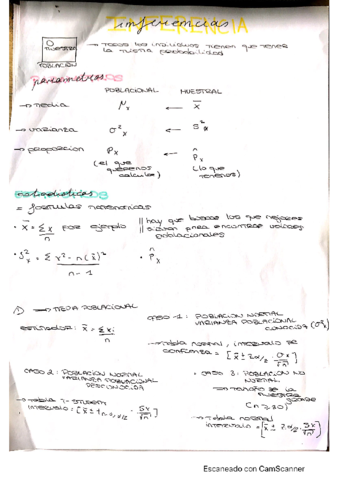 inferencias
INFERENCIA
muestra
POBLACION
→ TODOS los individuos tienen que tener
la misma probabilidad
parametros
POBLACIONAL MUESTRAL
→ media μx ← x̄
→ varianza σ²x ← S²x
→ proporcion Px ← p̂x
(el que queremos calcular) (lo que tenemos)
estadisticos
= formulas matematicas
• x̄ = Σx / n por ejemplo
|| hay que buscar los que mejores
sirvan para encontrar valores
poblacionales
• S²x = Σ x² - n(x̄)² / n - 1
• p̂x
① → MEDIA POBLACIONAL
estimador: x̄ = Σxi / n
CASO 1: POBLACION NORMAL
VARIANZA POBLACIONAL
CONOCIDA (σ²x)
→ tabla normal, intervalo de
confianza = [x̄ ± Zα/2 · σx/√n]
CASO 2: POBLACION NORMAL
VARIANZA POBLACIONAL
DESCONOCIDA
→ tabla T-STUDENT
intervalo: [x̄ ± tn-1, α/2 · Sx/√n]
• CASO 3: POBLACION NO
NORMAL
→ tamaño de la
muestra
grande
(n ≥ 30)
→ tabla normal
intervalo = [x̄ ± Zα/2 · Sx/√n]
Escaneado con CamScanner